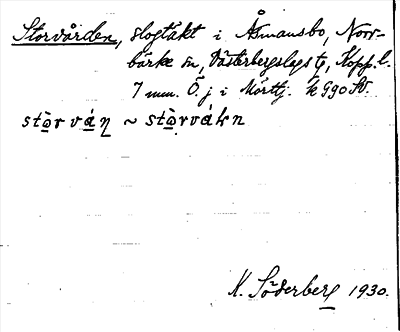 Storvården, slogtäkt i Åsmansbo, Norr-
bärke sn, Västerbergslags tg, Kopp. l.
7 mm. Ö. j i Mörttj. k G90 SV.
stòr vá̱n ~ stòrvákn
K. Söderberg 1930.